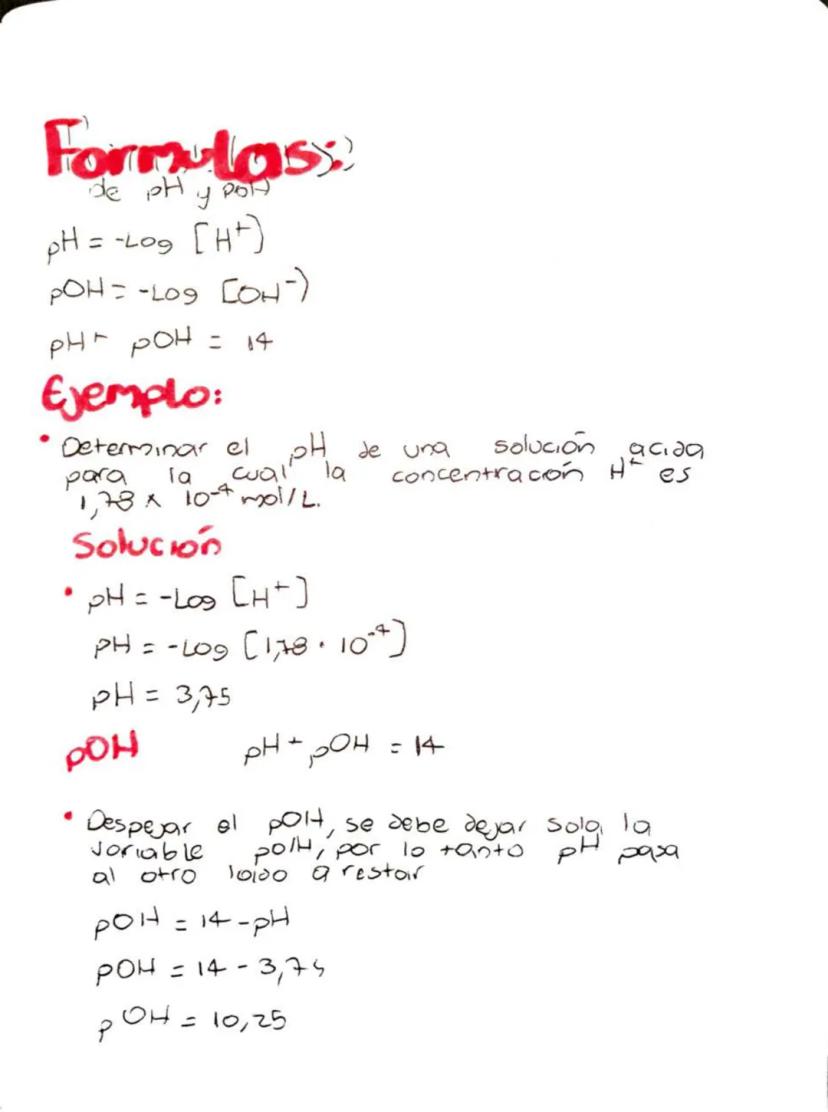 Formulas:
de pH y pOH
pH = -Log [H⁺)
pOH = -Log [OH⁻)
pH + pOH = 14
Ejemplo:
• Determinar el pH de una solución acida
para la cual la concentración H⁺ es
1,78 x 10⁻⁴ mol/L.
Solución
• pH = -Log [H⁺]
pH = -Log [1,78 · 10⁻⁴]
pH = 3,75
pOH pH + pOH = 14
• Despejar el pOH, se debe dejar sola la
variable pOH, por lo tanto pH pasa
al otro lado a restar
pOH = 14 - pH
pOH = 14 - 3,75
pOH = 10,25